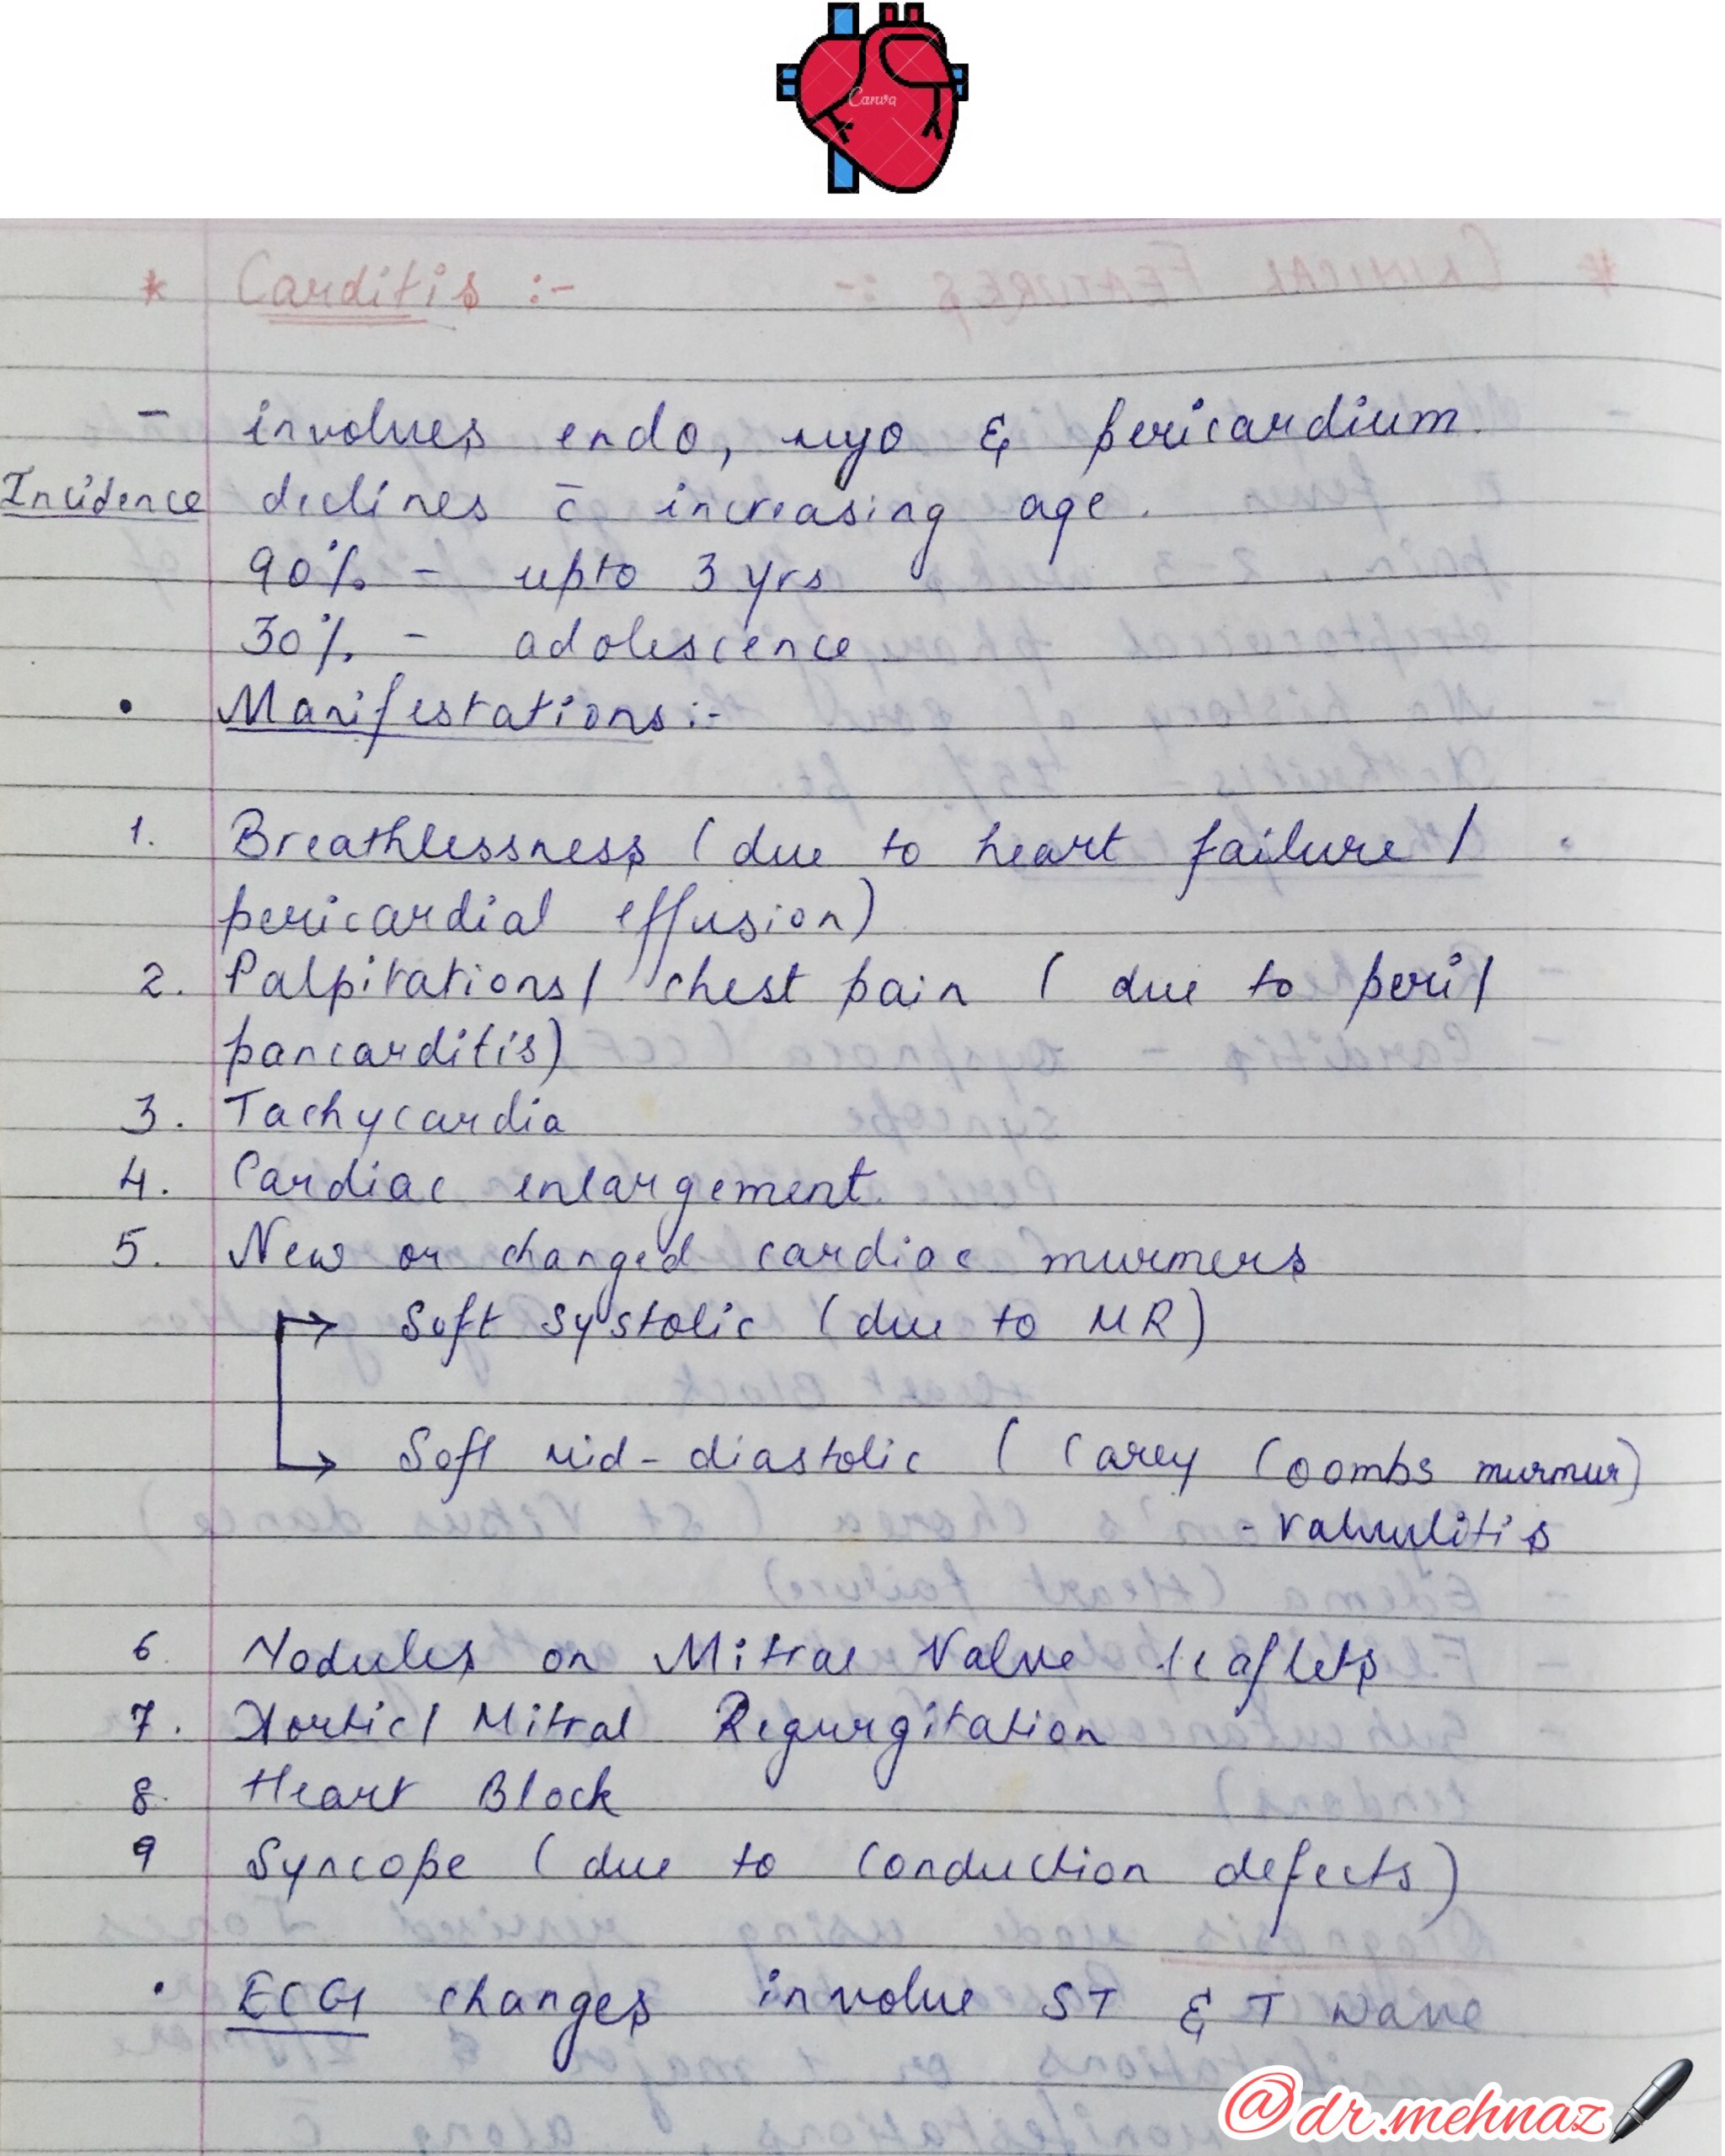 Canva
* Carditis :-
- involves endo, myo & pericardium.
Incidence declines c̄ increasing age.
90% - upto 3 yrs
30% - adolescence
• Manifestations :-
1. Breathlessness (due to heart failure /
pericardial effusion)
2. Palpitations / chest pain ( due to peri /
pancarditis)
3. Tachycardia
4. Cardiac enlargement.
5. New or changed cardiac murmers
→ Soft systolic (due to MR)
→ Soft mid-diastolic ( Carey Coombs murmur)
- Valvulitis
6. Nodules on Mitral Valve leaflets
7. Aortic / Mitral Regurgitation
8. Heart Block
9 Syncope (due to conduction defects)
• ECG changes involve ST & T wave
@dr.mehnaz